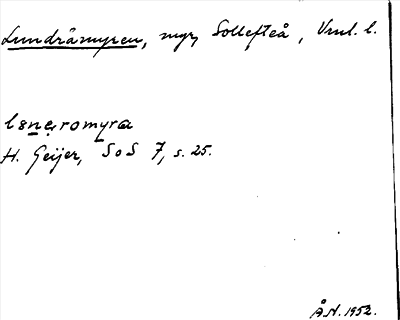 Lundråmyren, myr, Sollefteå, Vnl. l.
lɘnęromyrɑ
H. Geijer, SoS 7, s. 25.
ÅN. 1952.